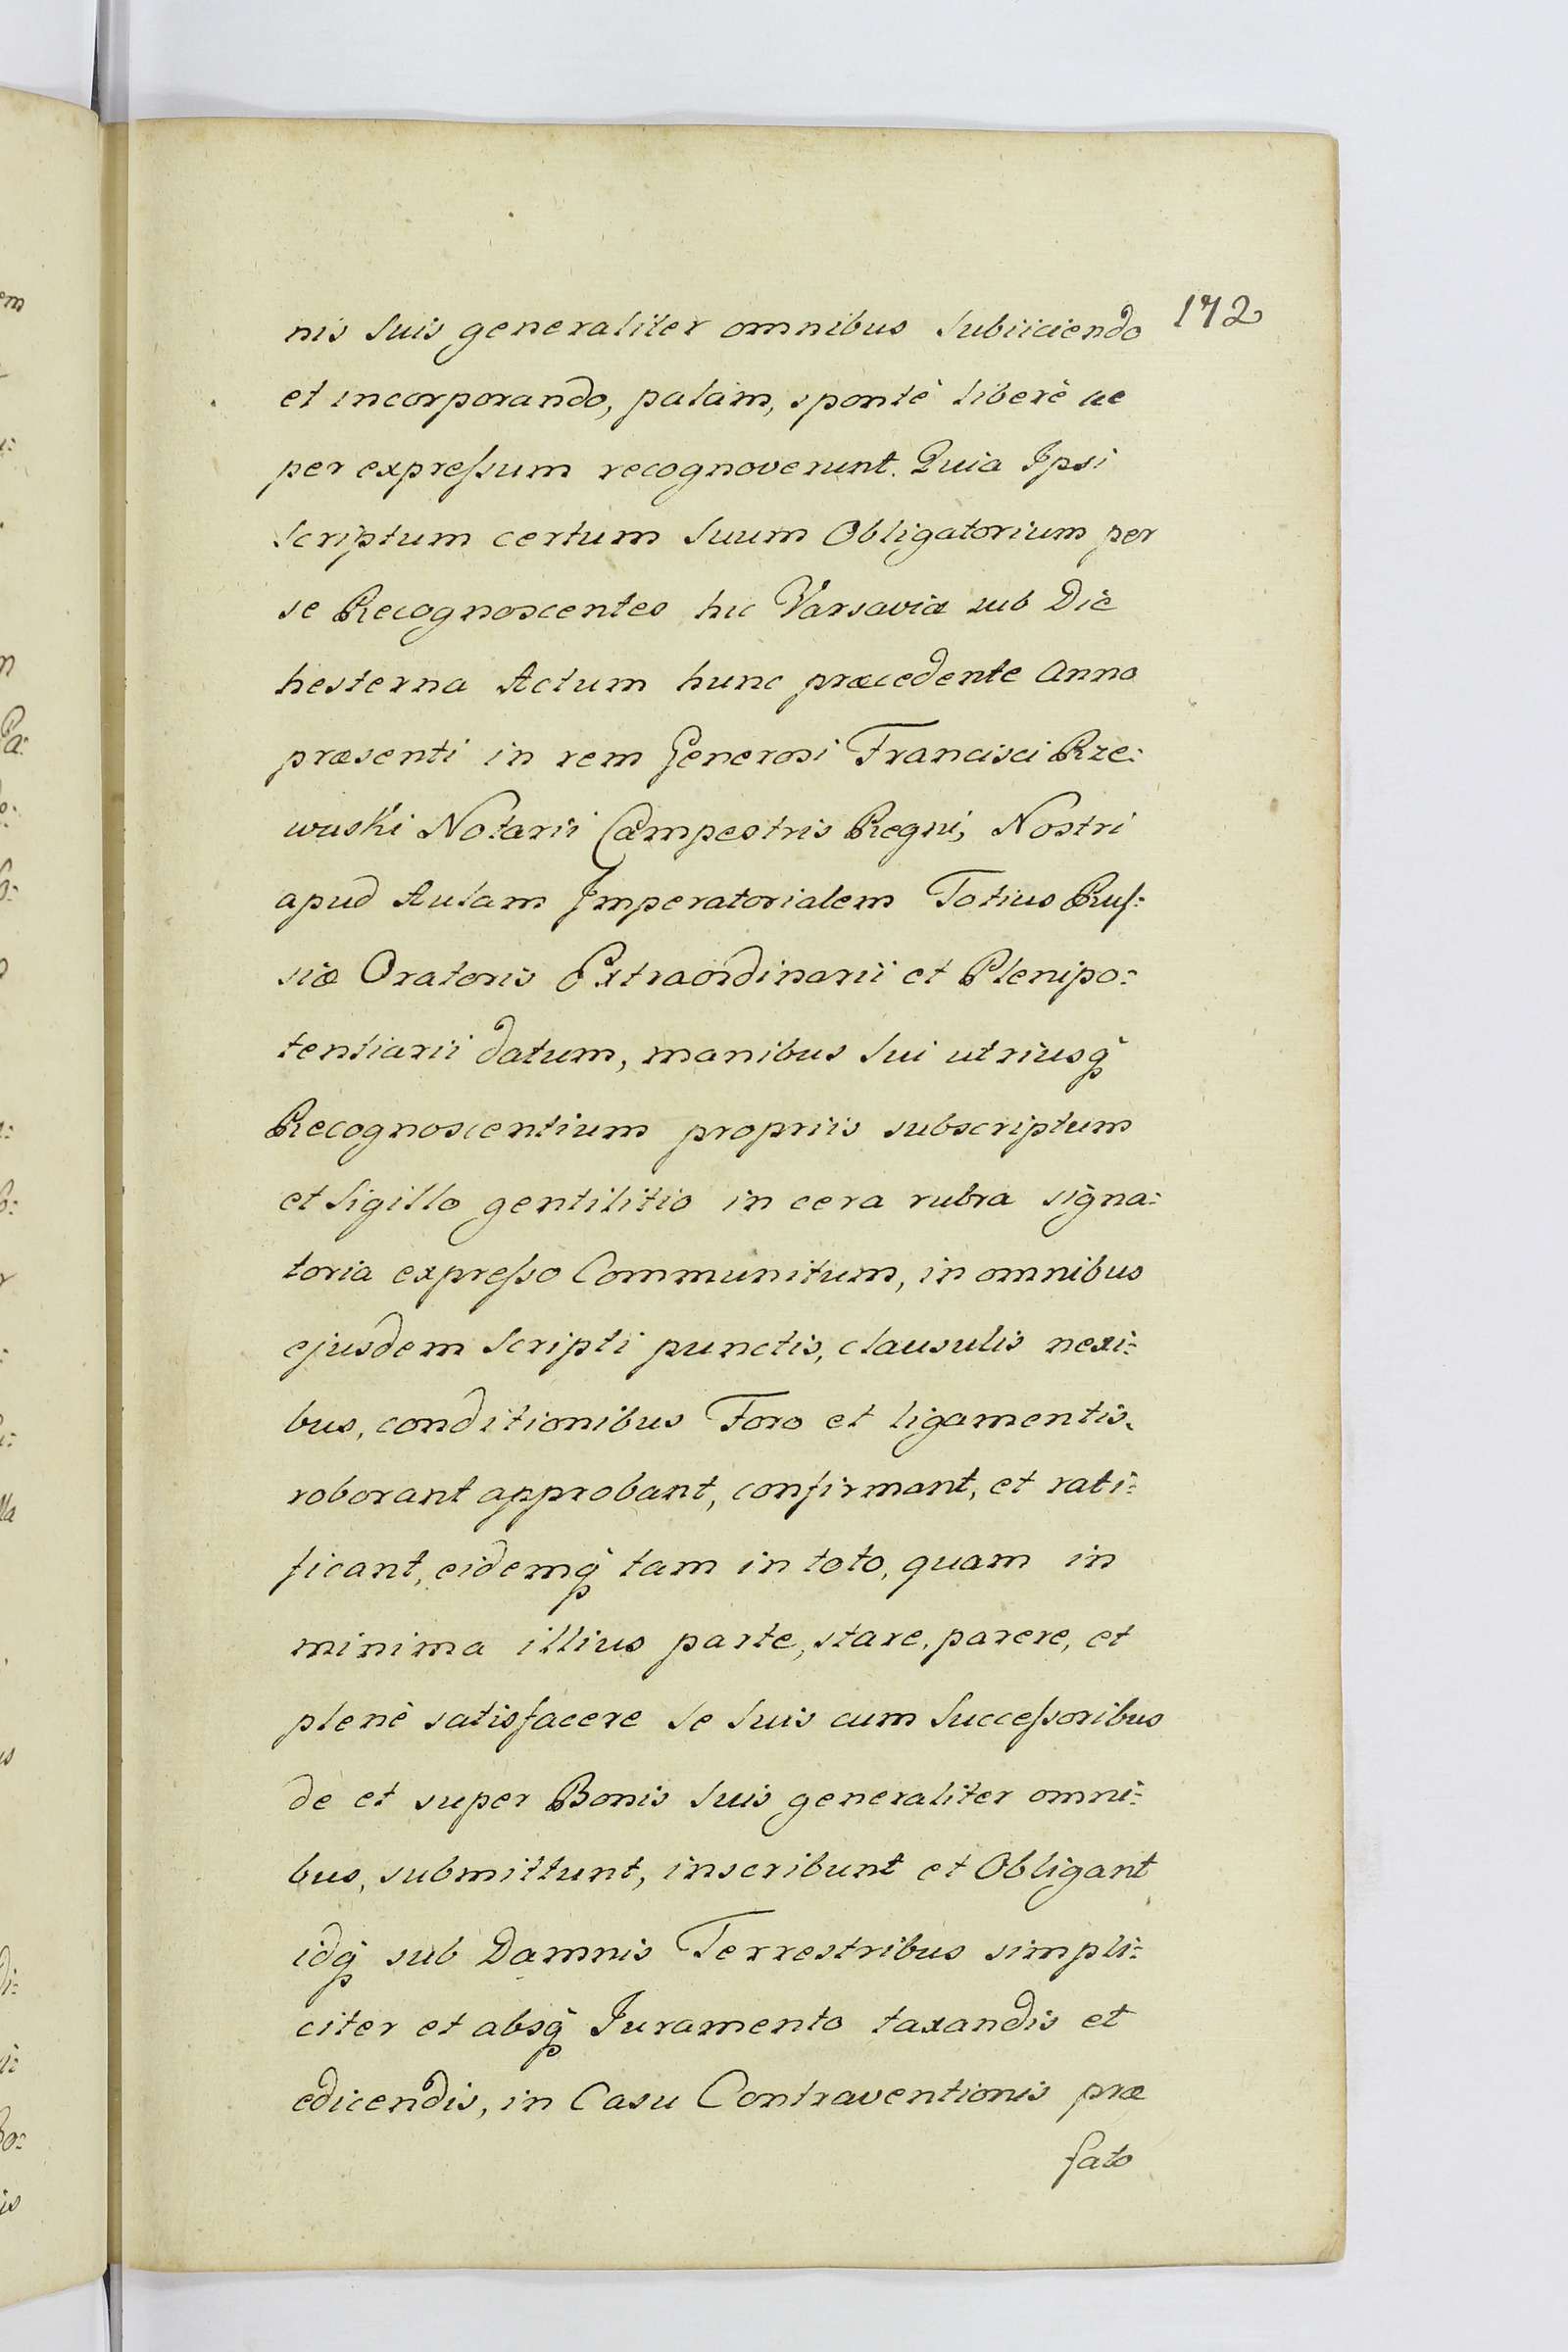 172
nis suis generaliter omnibus subiiciendo
et incorporando, palàm, spontè liberè ac
per expreſsum recognoverunt. Quia Ipsi
scriptum certum suum Obligatorium per
se Recognoscentes hic Varsaviæ sub Die
hesterna Actum hunc præcedente Anno
præsenti in rem Generosi Francisci Rze:
wuski Notarii Campestris Regni, Nostri
apud Aulam Imperatorialem Totius Ruſ:
siæ Oratoris Extraordinarii et Plenipo:
tentiarii datum, manibus sui utriusq̃
Recognoscentium propriis subscriptum
et Sigillo gentilitio in cera rubra signa:
toria expreſso Communitum, in omnibus
ejusdem Scripti punctis, clausulis nexi:
bus, conditionibus Foro et ligamentis,
roborant approbant, confirmant, et rati:
ficant, eidemq̃ tam in toto, quam in
minima illius parte, stare, parere, et
plenè satisfacere se suis cum Succeſsoribus
de et super Bonis suis generaliter omni:
bus, submittunt, inscribunt et Obligant
idq̃ sub Damnis Terrestribus simpli:
citer et absq̃ Iuramento taxandis et
edicendis, in Casu Contraventionis præ
fato